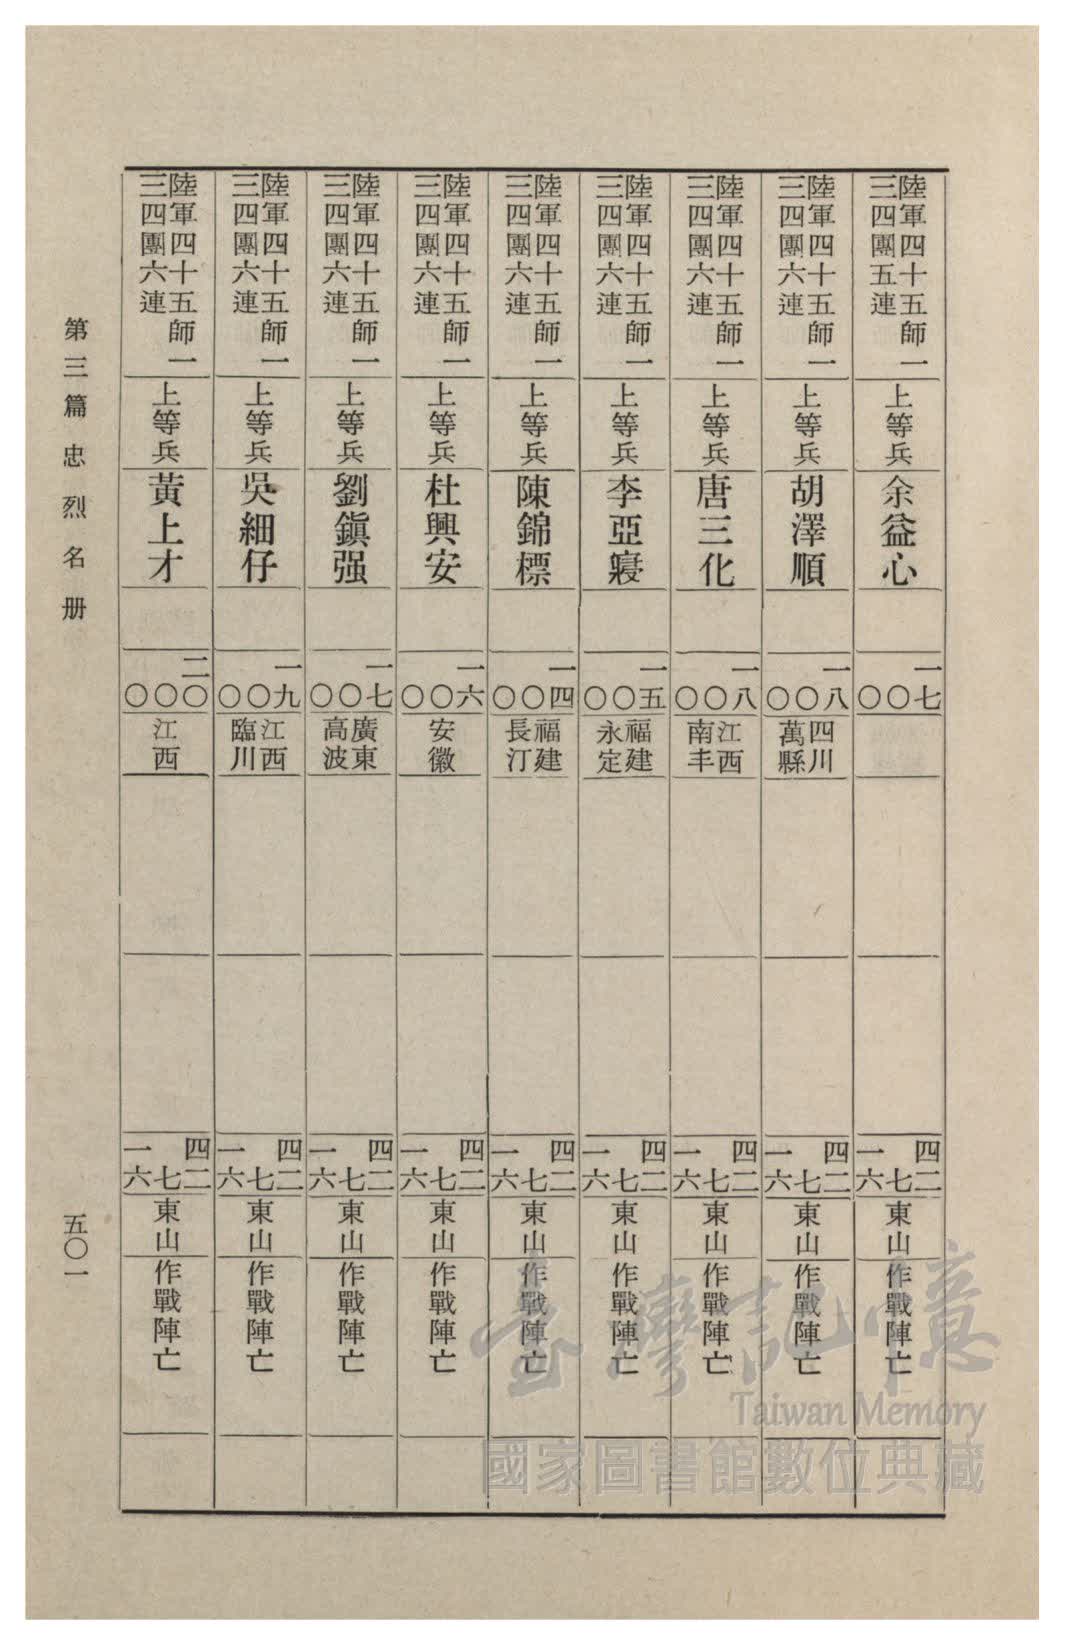 陸軍四十五師一
三四團五連
上等兵
余益心
一七〇〇〇
四二七一六
東山
作戰陣亡
陸軍四十五師一
三四團六連
上等兵
胡澤順
一八〇〇〇
四川
萬縣
四二七一六
東山
作戰陣亡
陸軍四十五師一
三四團六連
上等兵
唐三化
一八〇〇〇
江西
南丰
四二七一六
東山
作戰陣亡
陸軍四十五師一
三四團六連
上等兵
李亞寢
一五〇〇〇
福建
永定
四二七一六
東山
作戰陣亡
陸軍四十五師一
三四團六連
上等兵
陳錦標
一四〇〇〇
福建
長汀
四二七一六
東山
作戰陣亡
陸軍四十五師一
三四團六連
上等兵
杜興安
一六〇〇〇
安徽
四二七一六
東山
作戰陣亡
陸軍四十五師一
三四團六連
上等兵
劉鎭强
一七〇〇〇
廣東
高波
四二七一六
東山
作戰陣亡
陸軍四十五師一
三四團六連
上等兵
吳細仔
一九〇〇〇
江西
臨川
四二七一六
東山
作戰陣亡
陸軍四十五師一
三四團六連
上等兵
黃上才
二〇〇〇〇
江西
四二七一六
東山
作戰陣亡
第三篇 忠烈名册
五〇一
臺灣記憶
Taiwan Memory
國家圖書館數位典藏